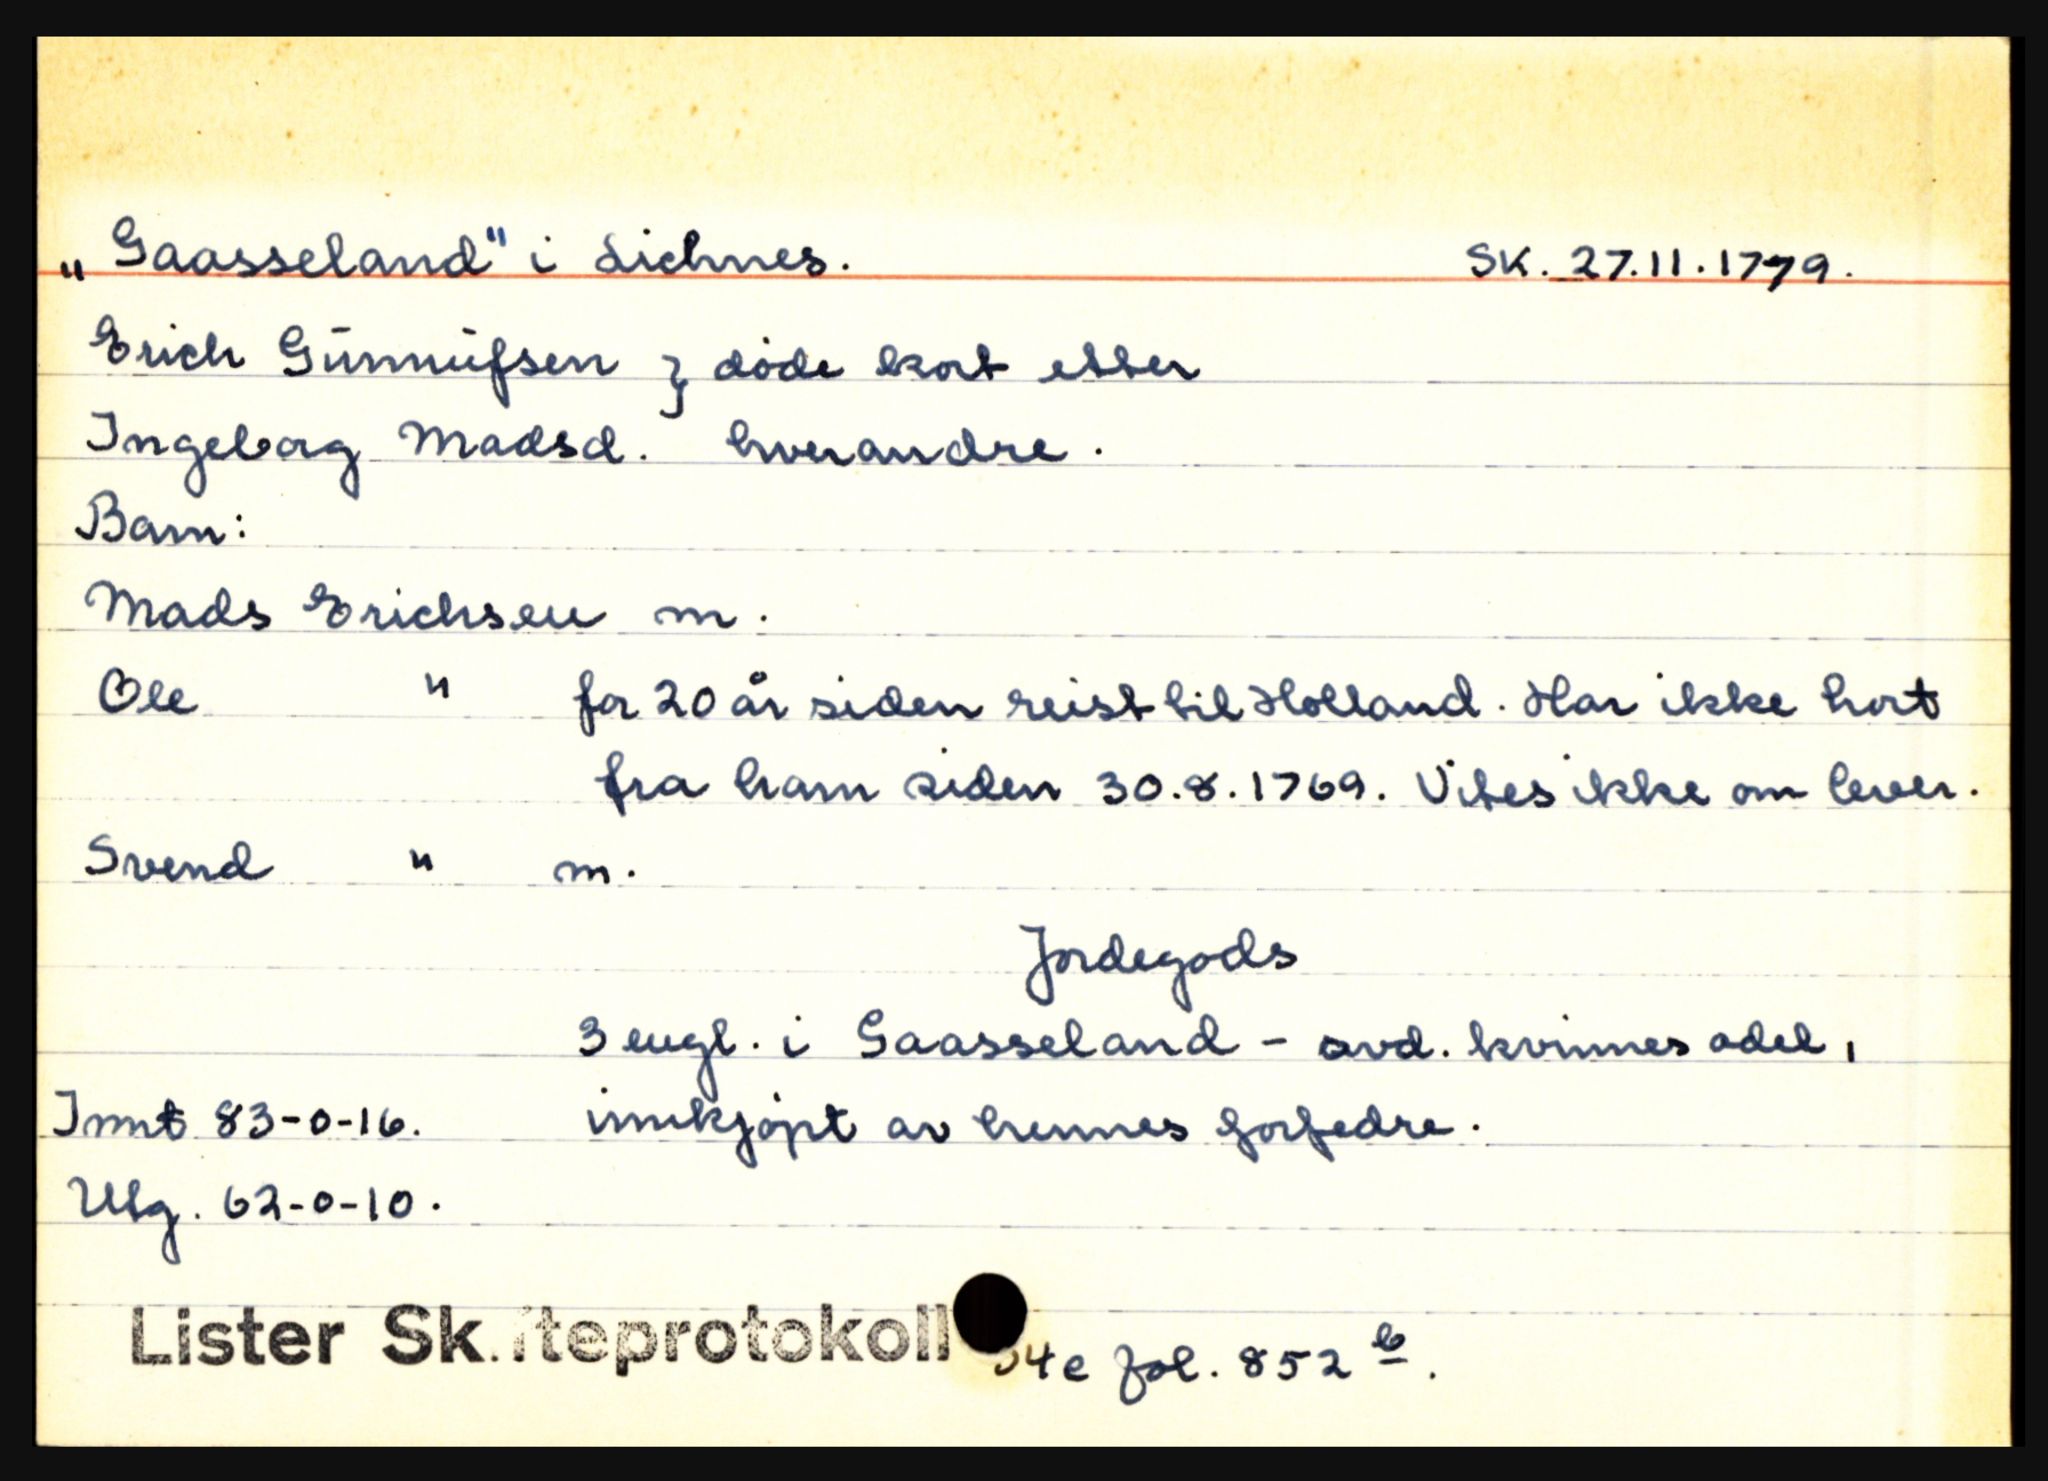 „Gaasseland" i Lichnes. SK. 27.11.1779.
Erich Günnüfsen } døde kort etter
Ingeborg Madsd. hverandre.
Barn:
Mads Erichsen m.
Ole " for 20 år siden reist til Holland. Har ikke hørt
fra ham siden 30.8.1769. Vites ikke om lever.
Svend " m.
Jordegods
3 engl. i Gaasseland - avd. kvinnes odel,
Innt 83-0-16. innkjøpt av hennes forfedre.
Utg. 62-0-10.
Lister Sk iteprotokoll 4e fol. 852 b.